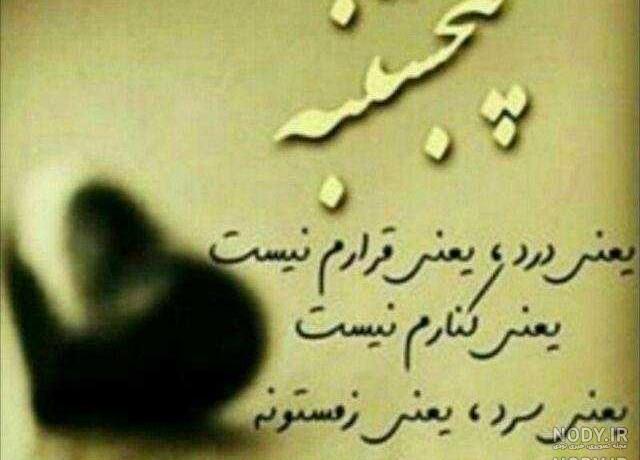 پنجشنبه
یعنی درد، یعنی قرارم نیست
یعنی کنارم نیست
یعنی سرد، یعنی زمستونه
NODY.IR